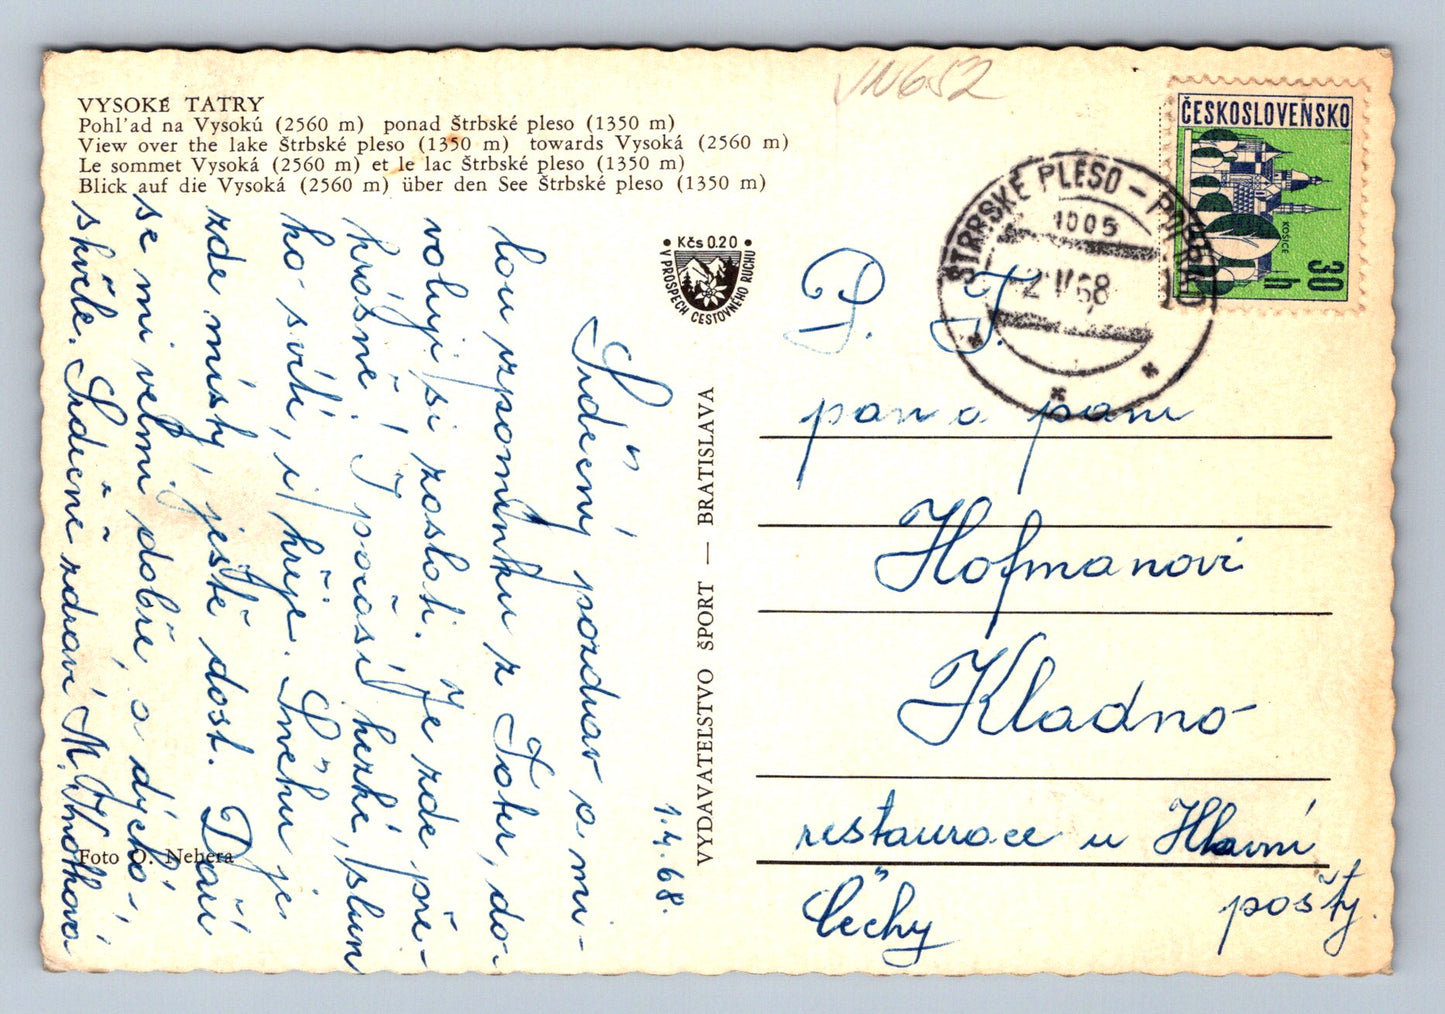 VYSOKÉ TATRY
Pohl'ad na Vysokú (2560 m) ponad Štrbské pleso (1350 m)
View over the lake Štrbské pleso (1350 m) towards Vysoká (2560 m)
Le sommet Vysoká (2560 m) et le lac Štrbské pleso (1350 m)
Blick auf die Vysoká (2560 m) über den See Štrbské pleso (1350 m)
VN652
ČESKOSLOVENSKO
KOŠICE
30 h
ŠTRBSKÉ PLESO
1005
68
Kčs 0.20
V PROSPECH CESTOVNÉHO RUCHU
1.4.68.
Srdečný pozdrav a mi-
lou vzpomínku z Tater, do-
voluji si zaslati. Je zde pře-
krásně! I počasí hezké, slun
ko svítí, i hřeje. Sněhu je
zde místy, ještě dost. Daří
se mi velmi dobře, a dýchá-
skvěle. Srdečně zdraví M.
VYDAVATEĽSTVO ŠPORT — BRATISLAVA
Foto O. Nehera
P. T.
pan a paní
Hofmanovi
Kladno
restaurace u Hlavní
pošty.
Čechy